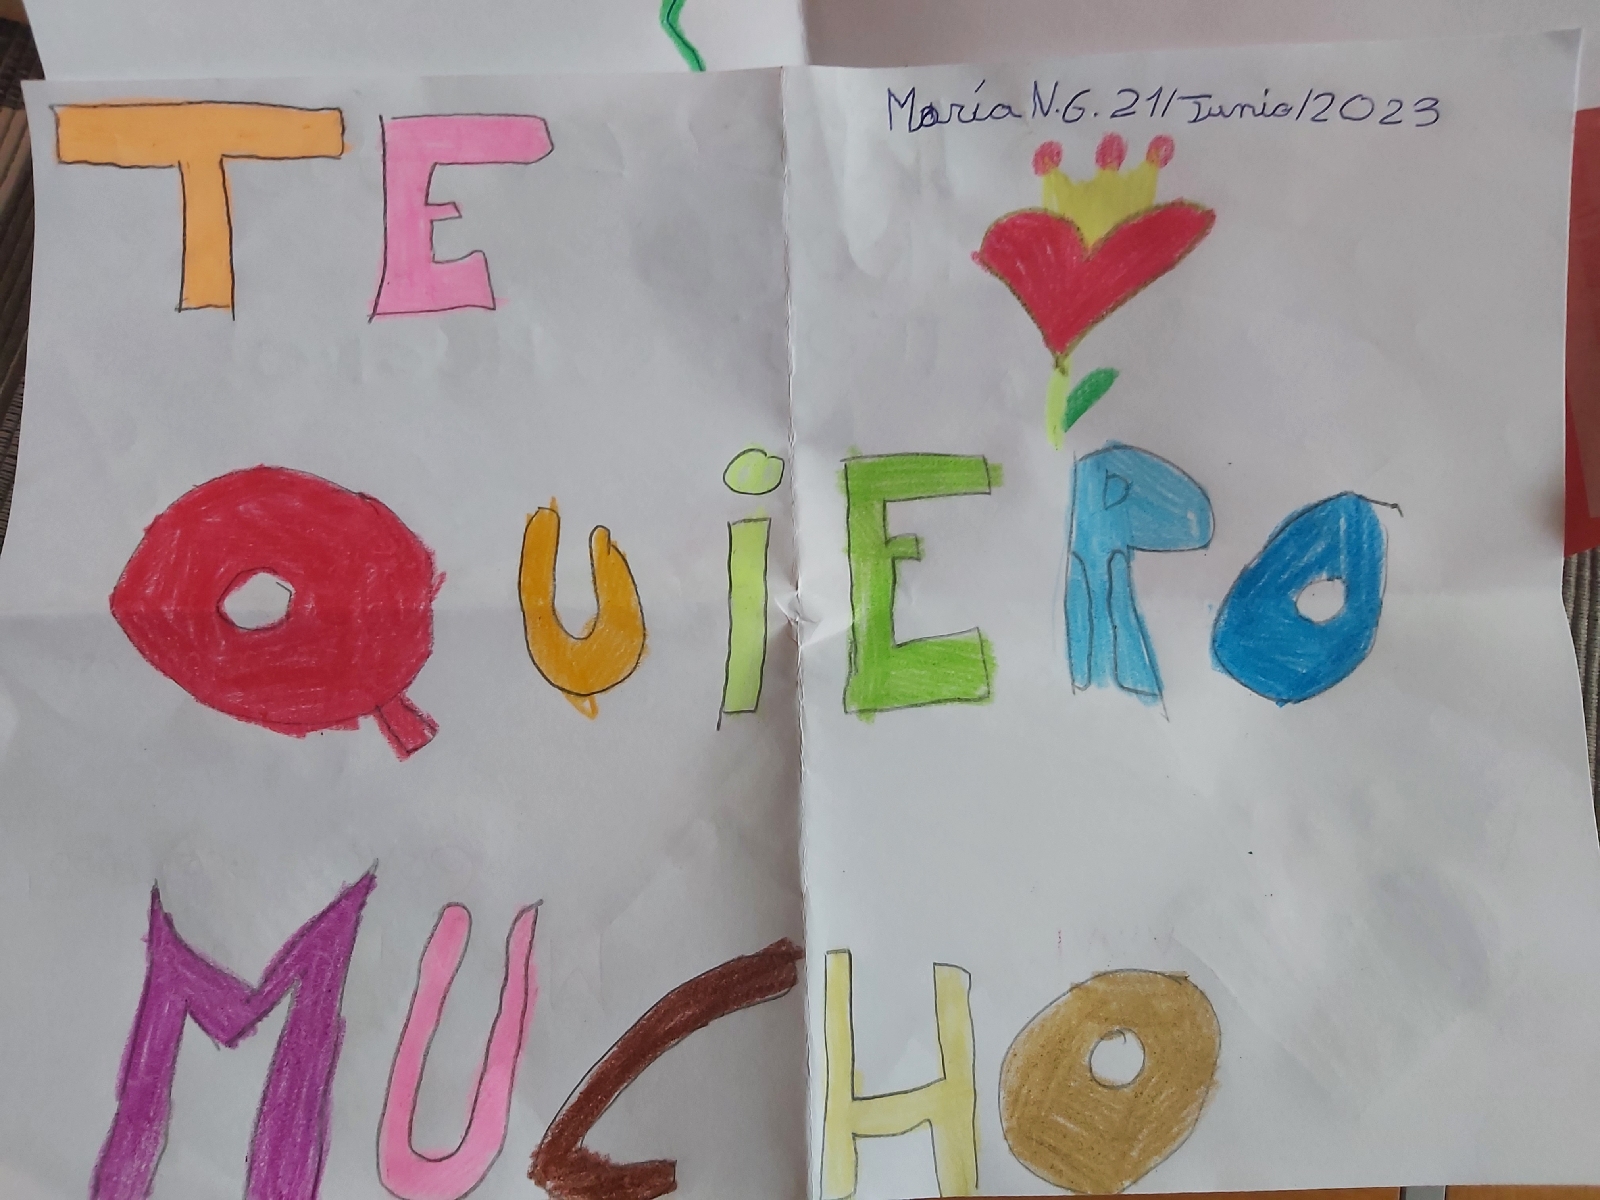 María N.G. 21/Junio/2023
TE
QUiERO
MUCHO